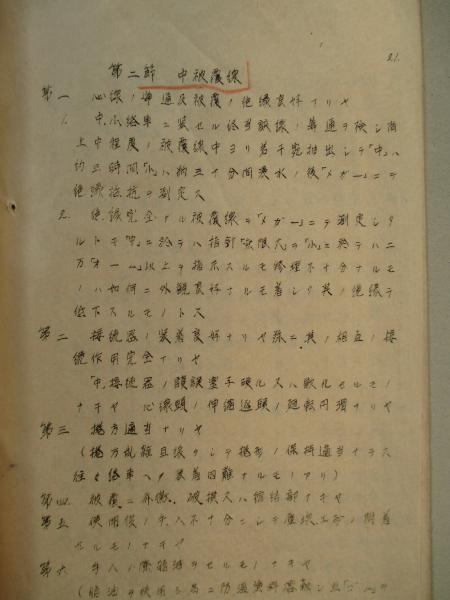 21.
第二節 中被覆線
第一 心線ノ導通及被覆ノ絶縁良好ナリヤ
1. 中、小絡車ニ装セル被覆線ノ導通ヲ検シ
上中程度ノ被覆線中ヨリ若干宛抽出シテ「中」ハ
約三時間「小」ハ約三十分間浸水ノ後「メガー」ニテ
絶縁抵抗ヲ測定ス
2. 絶縁完全ナル被覆線ヲ「メガー」ニテ測定シタ
ルトキ「中」ニ於テハ指針「無限大」ヲ「小」ニ於テハ二
万「オーム」以上ヲ指示スルモ修理不十分ナルモ
ノハ如何ニ外観良好ナルモ着シク其ノ絶縁ヲ
低下スルモノトス
第二 接続器ノ装着良好ナリヤ 其ノ相互ノ接
続作用完全ナリヤ
中接続器ノ護謨 硬化又ハ軟化セルモノ
ナキヤ 心線頭ノ伸縮 ノ廻転円滑ナリヤ
第三 捲方適当ナリヤ
(捲方乱雑且緩クシテ捲形ノ保持適当ナラス
往々絡車ヘノ装着困難ナルモノアリ)
第四 被覆ニ 破損又ハ 部ナキヤ
第五 使用後ノ手入不十分ニシテ塵埃土砂ノ附着
セルモノナキヤ
第六 手入ノ際 油ヲセルモノナキヤ